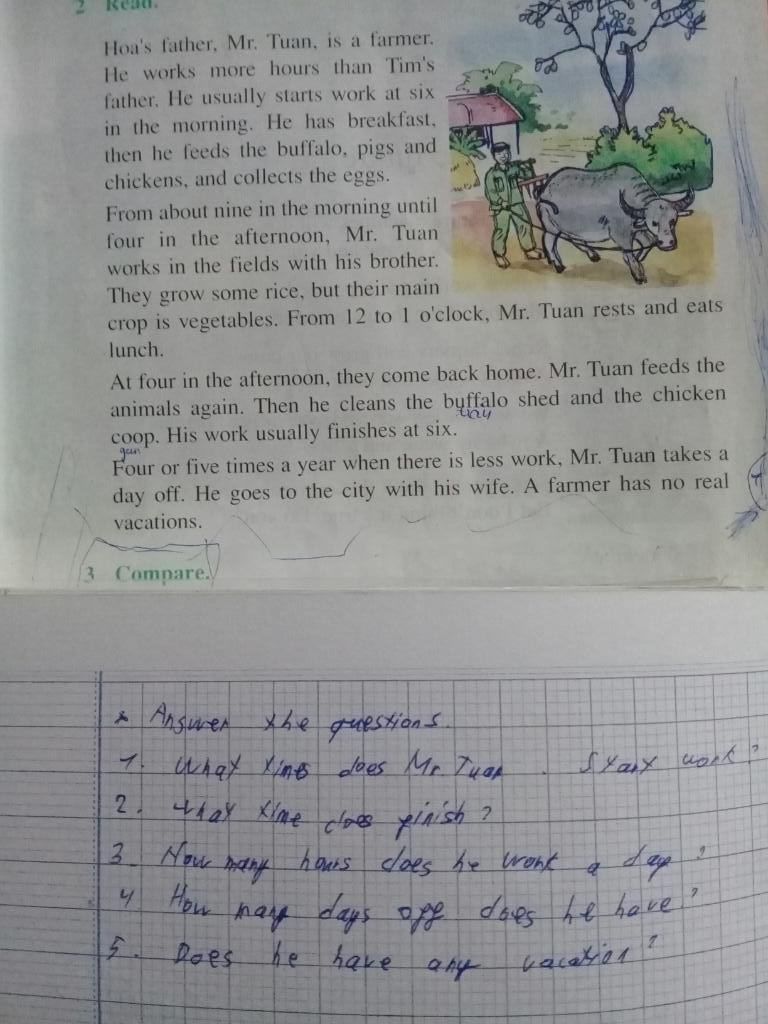 2 Read.
Hoa's father, Mr. Tuan, is a farmer.
He works more hours than Tim's
father. He usually starts work at six
in the morning. He has breakfast,
then he feeds the buffalo, pigs and
chickens, and collects the eggs.
From about nine in the morning until
four in the afternoon, Mr. Tuan
works in the fields with his brother.
They grow some rice, but their main
crop is vegetables. From 12 to 1 o'clock, Mr. Tuan rests and eats
lunch.
At four in the afternoon, they come back home. Mr. Tuan feeds the
animals again. Then he cleans the buffalo shed and the chicken
coop. His work usually finishes at six.
Four or five times a year when there is less work, Mr. Tuan takes a
day off. He goes to the city with his wife. A farmer has no real
vacations.
3 Compare.
* Answer the questions.
1. What times does Mr. Tuan. Start work?
2. What time does finish?
3 How many hours does he work a day?
4 How many days off does he have?
5. Does he have any vacation?